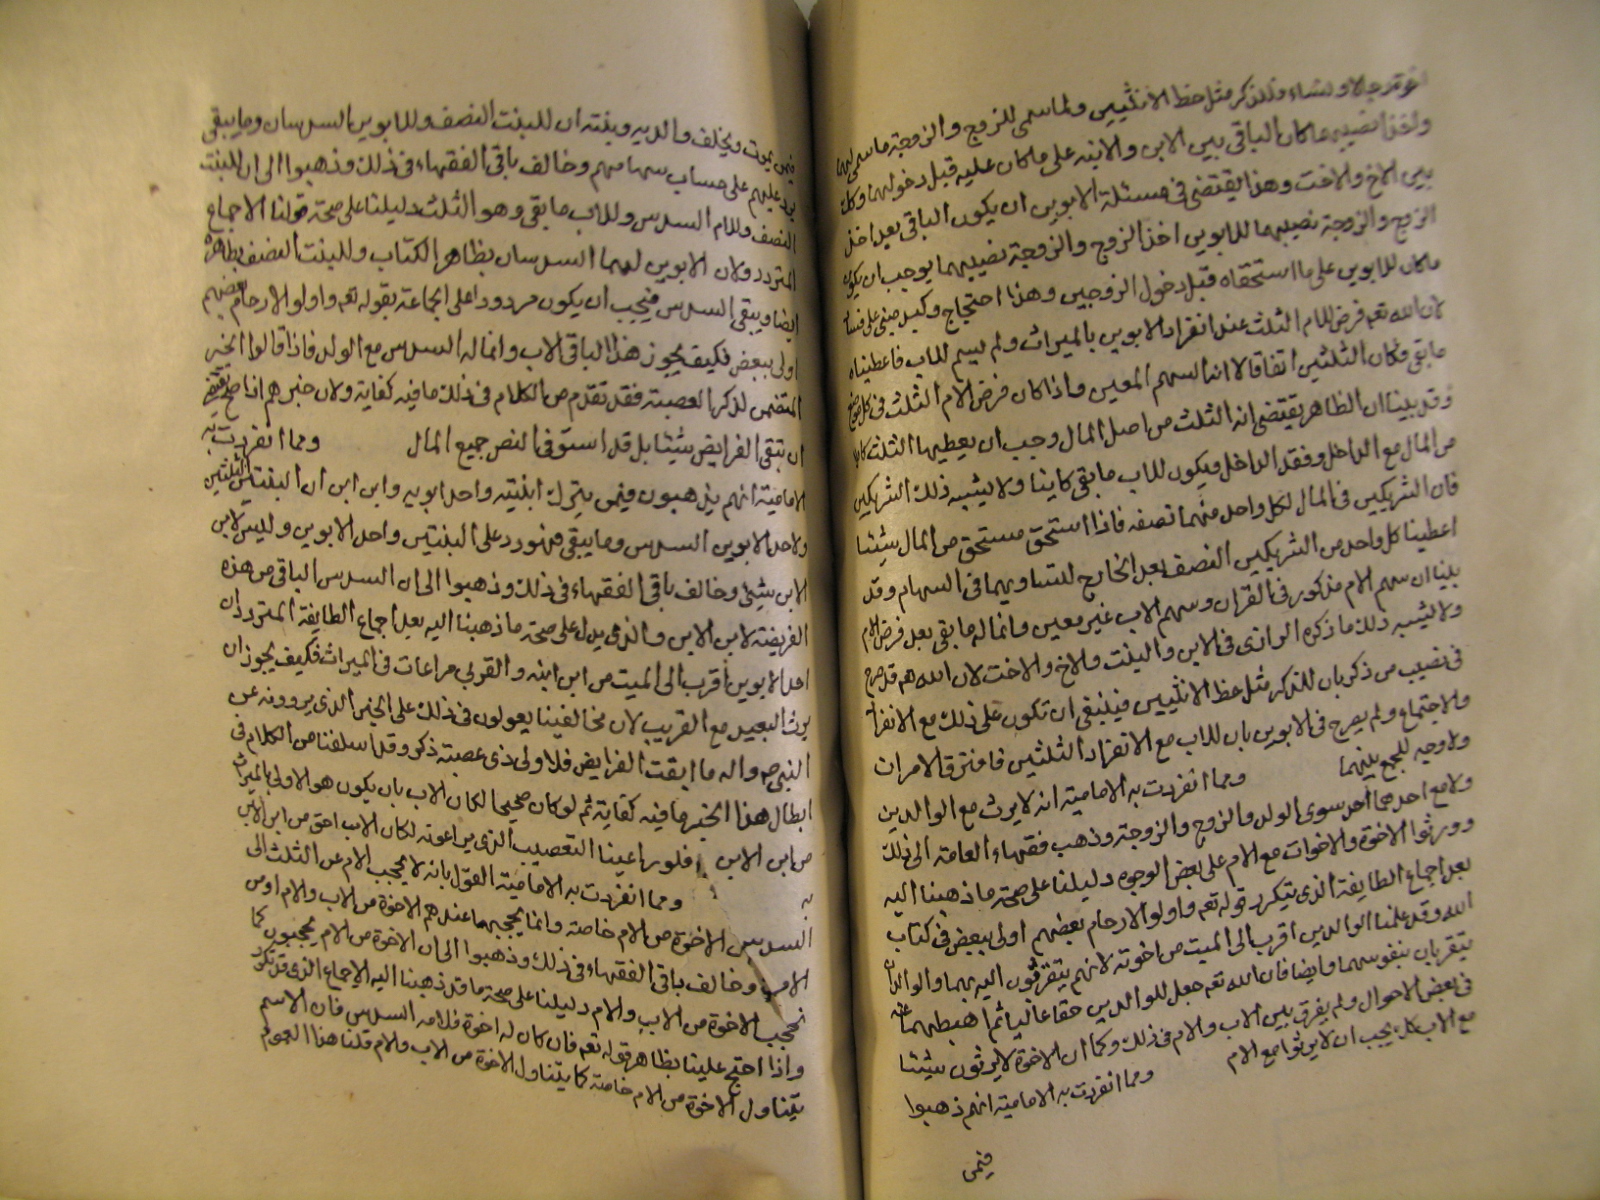 اخوة رجالا ونساء فللذكر مثل حظ الانثيين ولما سمى للزوج والزوجة ما سمى لهما
واخذا نصيبهما كان الباقي بين الابن والابنه على ما كان عليه قبل دخولهما وكذلك
بين الاخ والاخت وهذا يقتضي في مسئلة الابوين ان يكون الباقي بعد اخذ
الزوج والزوجة نصيبهما للابوين اخذ الزوج والزوجة نصيبهما يوجب ان يكون
ماكان للابوين على ما استحقاه قبل دخول الزوجين وهذا احتجاج وكيد مبني على
لان الله تعه فرض للام الثلث عند انفراد الابوين بالميراث ولم يسم للاب فاعطيناه
ما بقى فكان الثلثين اتفاقا لا انه السهم المعين واذا كان فرض الام الثلث في كل موضع
وقد بينا ان الظاهر يقتضي انه الثلث من اصل المال وجب ان يعطيها الثلث كاملا
من المال مع الداخل وفقد الداخل ويكون للاب ما بقى كاينا ولا يشبه ذلك الشريكين
فان الشريكين في المال لكل واحد منهما نصفه فاذا استحق مستحق من المال شيئا
اعطينا كل واحد من الشريكين النصف بعد الخارج لتساويهما في السهام وقد
بينا ان سهم الام مذكور في القران وسهم الاب غير معين وانما له ما بقى بعد فرض الام
ولا يشبه ذلك ما ذكره الرازى في الابن والبنت والاخ والاخت لان الله تعه قد صرح
في نصيب من ذكر بان للذكر مثل حظ الانثيين فينبغي ان تكون على ذلك مع الانفراد
والاجتماع ولم يصرح في الابوين بان للاب مع الانفراد الثلثين فافترق الامران
ولا وجه للجمع بينهما ومما انفردت به الامامية انه لا يرث مع الوالدين
ولا مع احدهما احد سوى الولد والزوج والزوجة وذهب فقهاء العامة الى ذلك
وورثوا الاخوة والاخوات مع الام على بعض الوجوه دليلنا على صحة ما ذهبنا اليه
بعد اجماع الطايفة الذى يتكرر قوله تعه واولو الارحام بعضهم اولى ببعض في كتاب
الله وقد علمنا الوالدين اقرب الى الميت من اخوته لانهم يتقربون اليه بهما والوالدان
يتقربان بنفوسهما وايضا فان الله تعه جعل للوالدين حقا عاليا ثم اهبطهما عنه
في بعض الاحوال ولم يفرق بين الاب والام في ذلك وكما ان الاخوة لا يرثون شيئا
مع الاب كل يجب ان لا يرثوا مع الام ومما انفردت به الامامية انهم ذهبوا
فيمن
فيمن يموت ويخلف والديه وبنته ان للبنت النصف وللابوين السدسان وما يبقى
يرد عليهم على حساب سهامهم وخالف باقي الفقهاء في ذلك وذهبوا الى ان للبنت
النصف وللام السدس وللاب ما بقى وهو الثلث دليلنا على صحة قولنا الاجماع
المتردد ولان الابوين لهما السدسان بظاهر الكتاب وللبنت النصف بظاهره
ايضا ويبقى السدس فيجب ان يكون مردودا على الجماعة بقوله تعه واولو الارحام بعضهم
اولى ببعض فكيف يجوز هذا الباقي الاب وانما له السدس مع الولد فاذا قالوا الخبر
المتضمن لذكر العصبة فقد تقدم من الكلام في ذلك ما فيه كفاية ولان خبرهم اذا صح
ان تبقى الفرايض شيئا بل قد استوفى النص جميع المال ومما انفردت به
الامامية انهم يذهبون فيمن يترك ابنتيه واحد ابويه وابن ابن ان البنتين الثلثين
ولاحد الابوين السدس وما يبقى فهو رد على البنتين واحد الابوين وليس لابن
الابن شئ وخالف باقي الفقهاء في ذلك وذهبوا الى ان السدس الباقي من هذه
الفريضة لابن الابن والذى يدل على صحة ما ذهبنا اليه بعد اجماع الطايفة المتردد ان
احد الابوين اقرب الى الميت من ابن ابنه والقربى مراعات في الميراث فكيف يجوز ان
يرث البعيد مع القريب لان مخالفينا يعولون في ذلك على الخبر الذى يروونه عن
النبي صه واله ما ابقت الفرايض فلاولى ذى عصبة ذكر وقد اسلفنا من الكلام في
ابطال هذا الخبر ما فيه كفاية ثم لو كان صحيحا لكان الاب بان يكون هو الاولى بالميراث
من ابن الابن فلو راعينا التعصيب الذى يراعونه لكان الاب احق من ابن الابن
به ومما انفردت به الامامية القول بانه لا يحجب الام عن الثلث الى
السدس الاخوة من الام خاصة وانما يحجبها عندهم الاخوة من الاب والام او من
الاب وخالف باقي الفقهاء في ذلك وذهبوا الى ان الاخوة من الام يحجبون كما
تحجب الاخوة من الاب والام دليلنا على صحة ما قد ذهبنا اليه الاجماع الذى قد تكرر
واذا احتج علينا بظاهر قوله تعه فان كان له اخوة فلامه السدس فان الاسم
يتناول الاخوة من الام خاصة كما يتناول الاخوة من الاب والام قلنا هذا العموم